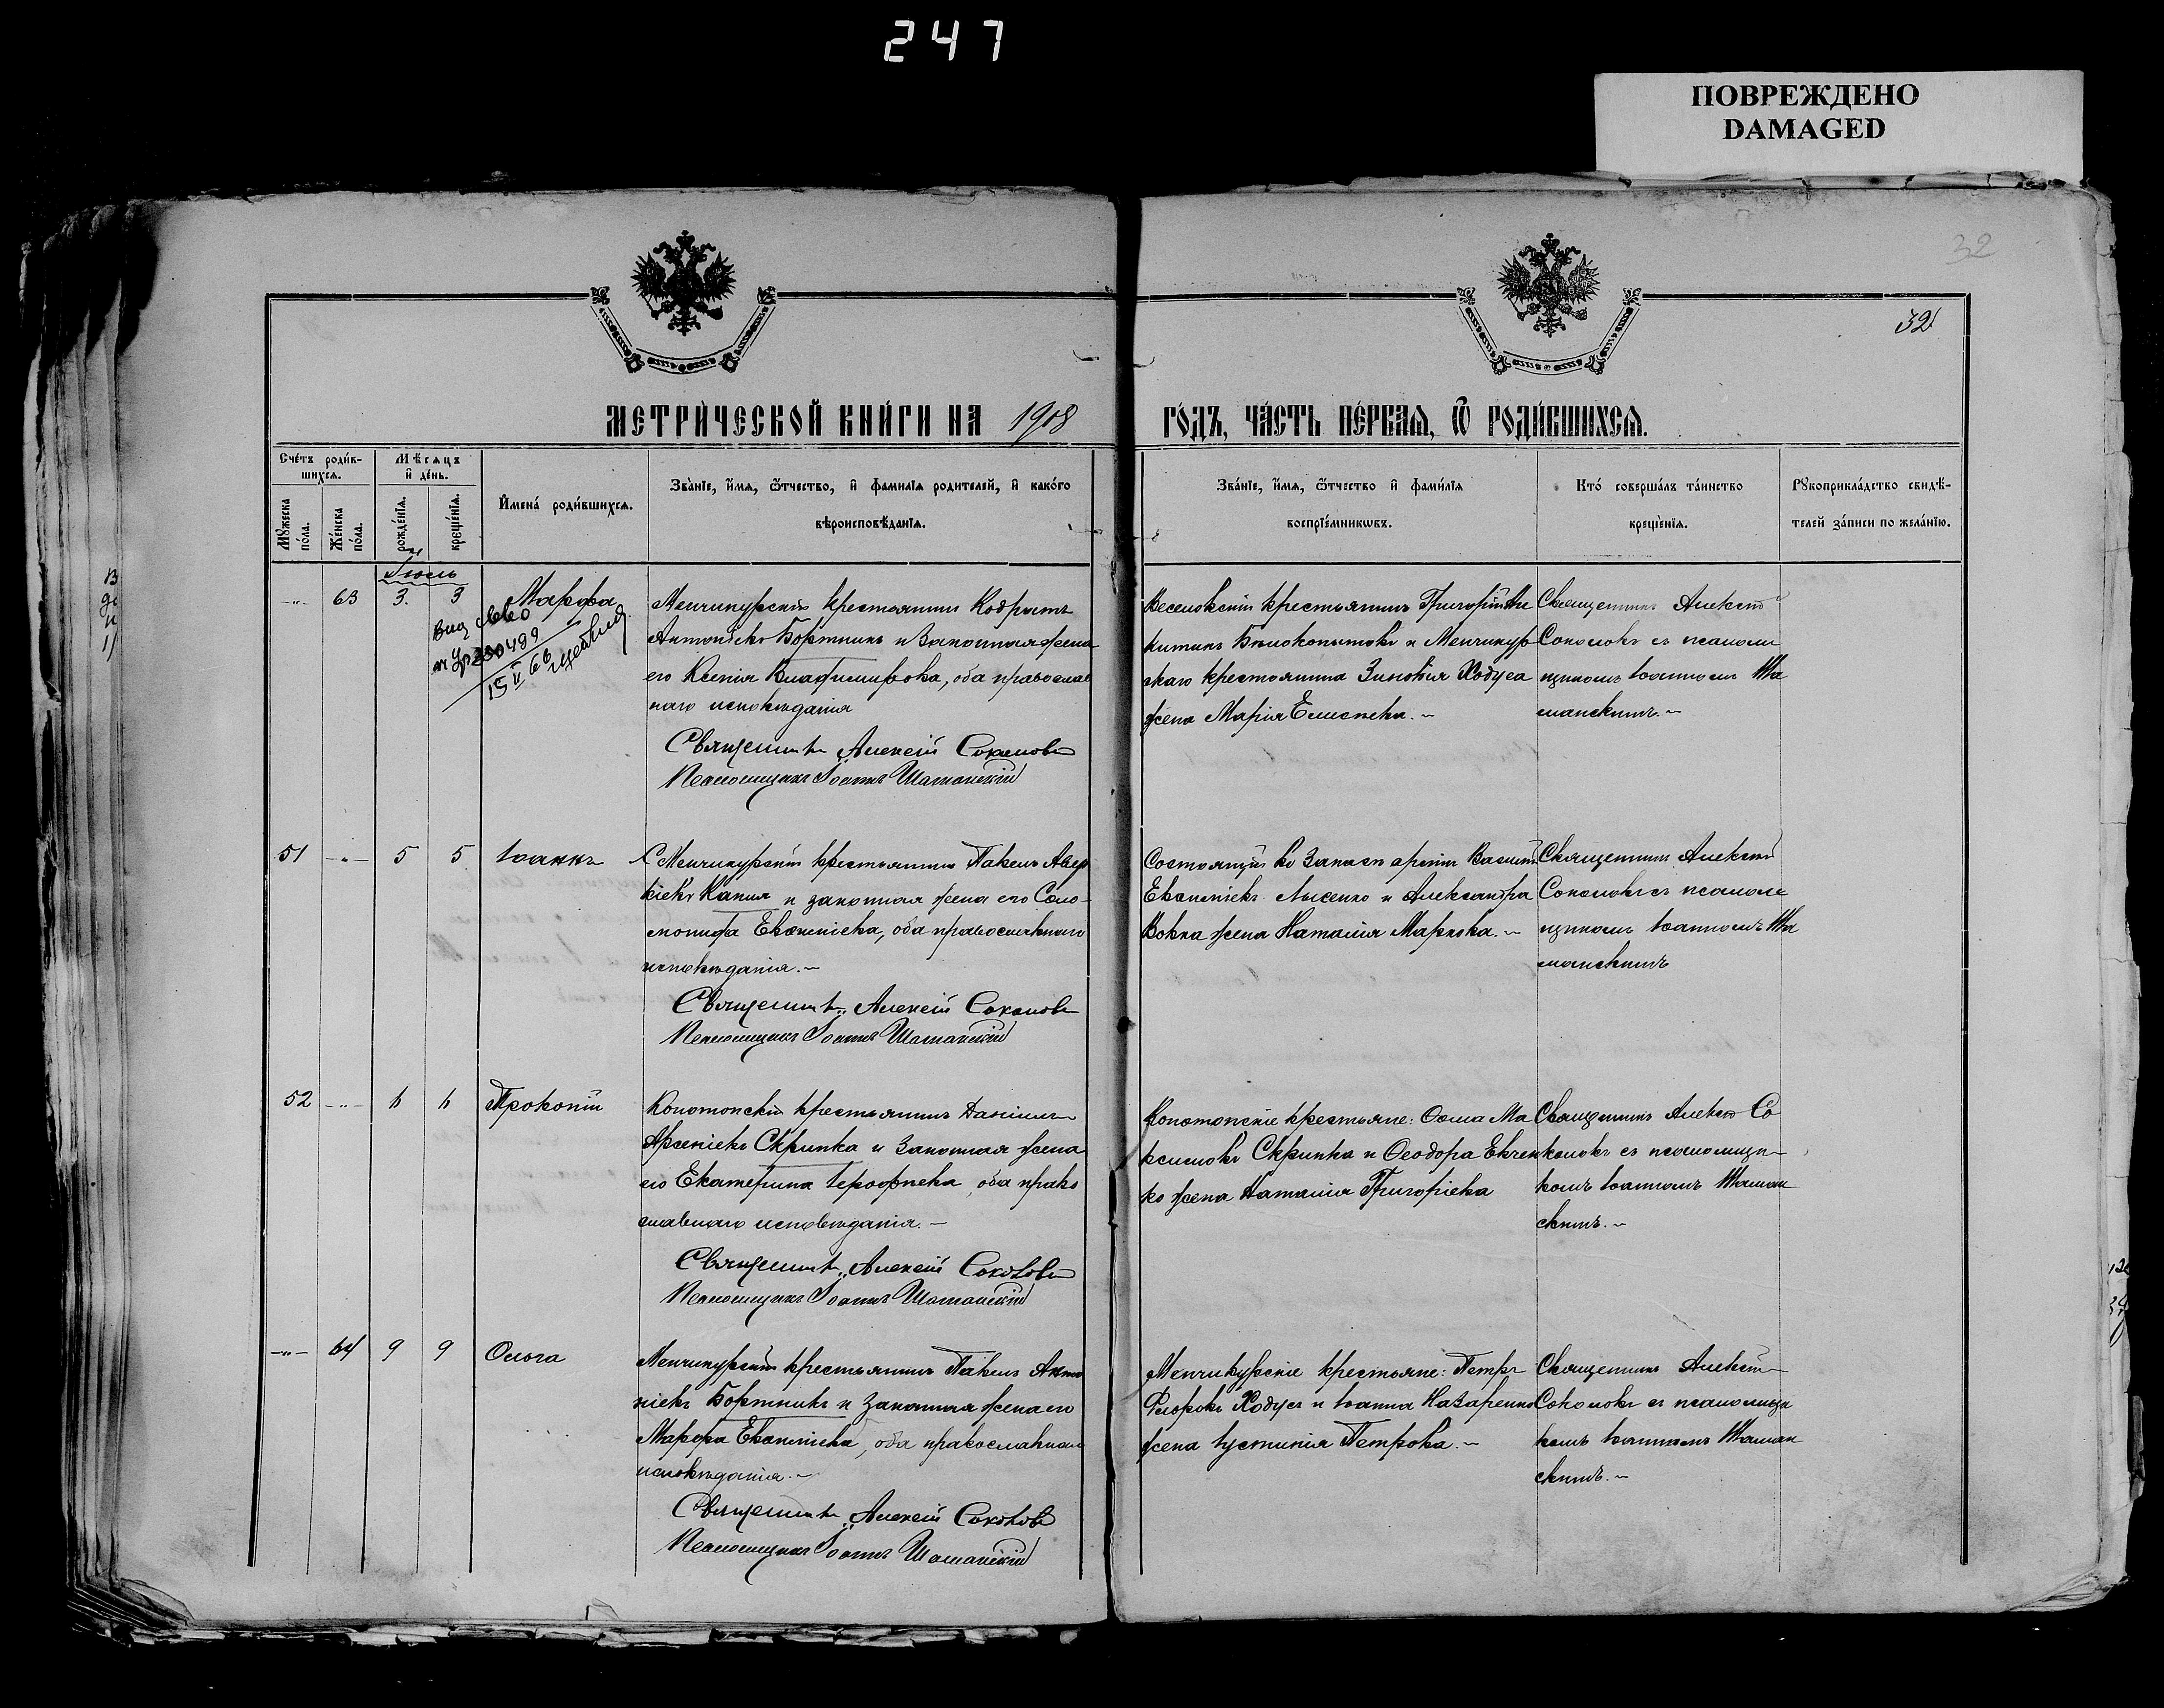 247
ПОВРЕЖДЕНО
DAMAGED
32
32
МЕТРИ́ЧЕСКОЙ КНИ́ГИ НА 1908
ГО́ДЪ, ЧА́СТЬ ПЕ́РВАѦ, Ѡ҃ РОДИ́ВШИХСѦ.
Сче́тъ роди́в-
шихсѧ.
Мѣ́сѧцъ
и҆ де́нь.
Мꙋ́жеска
по́ла.
Же́нска
по́ла.
рожде́нїѧ.
креще́нїѧ.
И҆мена̀ роди́вшихсѧ.
Зва́нїе, и҆́мѧ, ѻ҆́тчество, и҆ фами́лїѧ роди́телей, и҆ како́го
вѣроисповѣ́данїѧ.
Зва́нїе, и҆́мѧ, ѻ҆́тчество и҆ фами́лїѧ
воспрїе́мникѡвъ.
Кто̀ соверша́лъ та́инство
креще́нїѧ.
Рꙋкоприкла́дство свидѣ́-
телей за́писи по жела́нїю.
Іюль
-"- 63 3. 3 Марфа
15 II 66
Менчикурскій крестьянинъ Кодратъ
Антоніевъ Бортникъ и законная жена
его Ксенія Владимирова, оба православ
наго исповѣданія
Священникъ Алексій Соколовъ
Псаломщикъ Іоаннъ Шаманскій
Веселовскій крестьянинъ Григорій Ни
китинъ Бѣлокопытовъ и Менчикур
скаго крестьянина Зиновія Ходуса
жена Марія Елисѣева.
Священникъ Алексѣй
Соколовъ съ псалом
щикомъ Іоанномъ Ша
манскимъ.
51 -"- 5 5 Іоаннъ
Менчикурскій крестьянинъ Павелъ Авер
кіевъ Капля и законная жена его Соло-
монида Евѳиміева, оба православнаго
исповѣданія.
Священникъ Алексій Соколовъ
Псаломщикъ Іоаннъ Шаманскій
Состоящій въ запасѣ арміи Василій
Евѳиміевъ Лысенко и Александра
Вовка жена Наталія Маркова.
Священникъ Алексѣй
Соколовъ съ псалом
щикомъ Іоанномъ Ша
манскимъ
52 -"- 6 6 Прокопій
Конотопскій крестьянинъ Даніилъ
Арсеніевъ Скрипка и законная жена
его Екатерина Іероѳеева, оба право
славнаго исповѣданія.
Священникъ Алексій Соколовъ
Псаломщикъ Іоаннъ Шаманскій
Конотопскіе крестьяне: Ѳома Ма
ксимовъ Скрипка и Ѳеодора Евчен
ко жена Наталія Григоріева
Священникъ Алексѣй Со
коловъ съ псаломщи-
комъ Іоанномъ Шаман
скимъ.
-"- 64 9 9 Ольга
Менчикурскій крестьянинъ Павелъ Анто
ніевъ Бортникъ и законная жена его
Марфа Евѳиміева, оба православнаго
исповѣданія.
Священникъ Алексій Соколовъ
Псаломщикъ Іоаннъ Шаманскій
Менчикурскіе крестьяне: Петръ
Флоровъ Ходусъ и Іоанна Назаренко
жена Іустинія Петрова.
Священникъ Алексѣй
Соколовъ съ псаломщи
комъ Іоанномъ Шаман
скимъ.